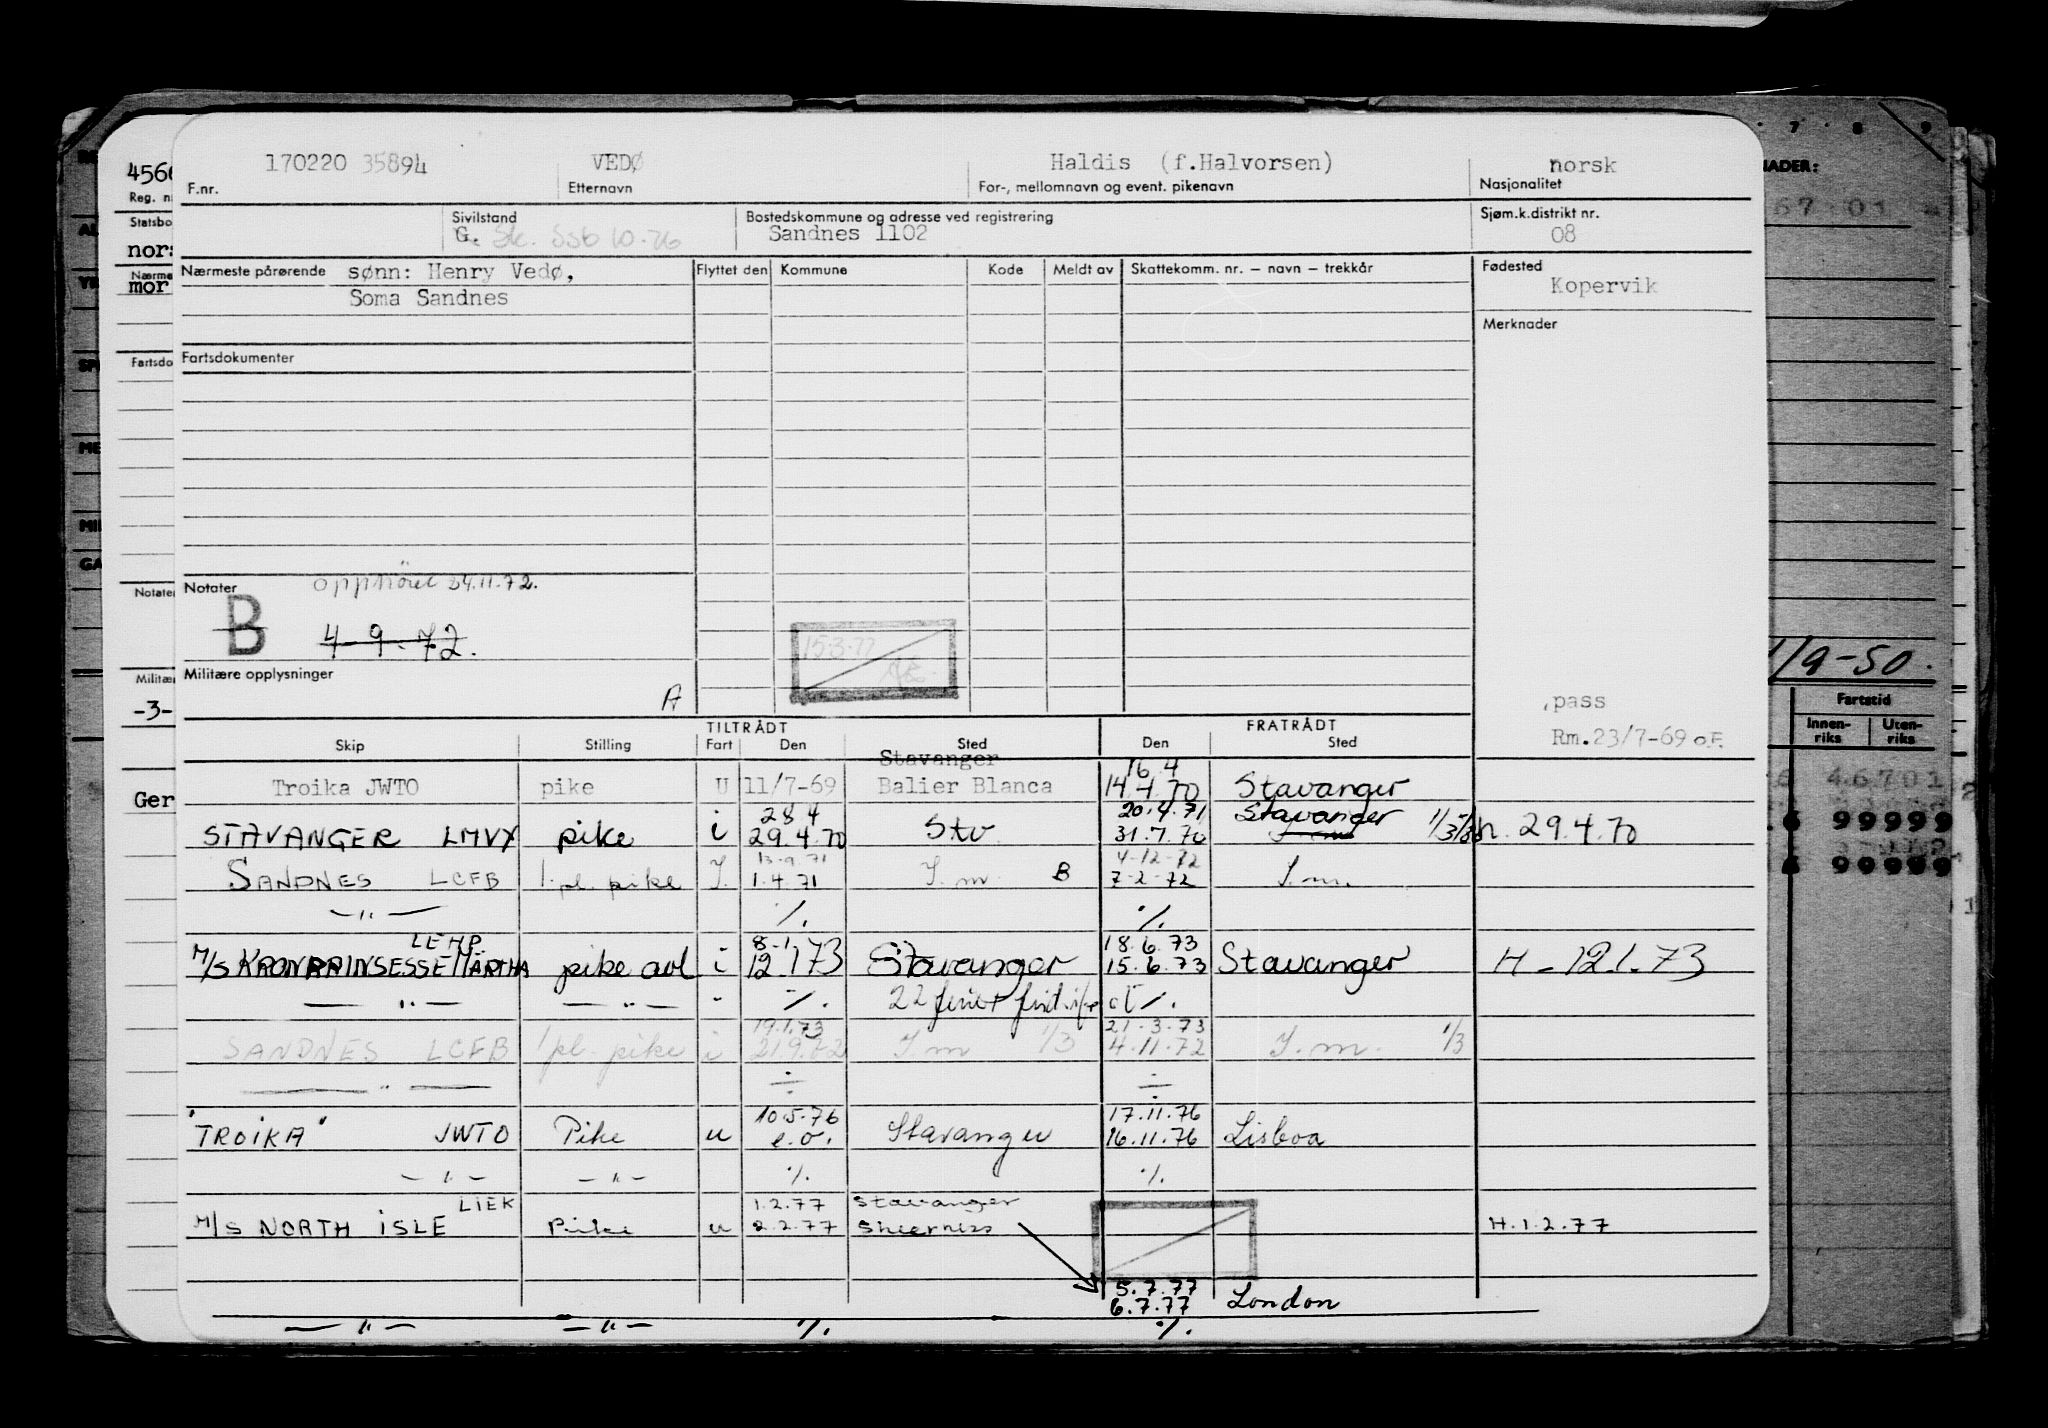 170220 35894 VEDØ Haldis (f.Halvorsen) norsk
F.nr. Etternavn For-, mellomnavn og event. pikenavn Nasjonalitet
Sivilstand Bostedskommune og adresse ved registrering Sjøm.k.distrikt nr.
G. Sk. SSb 10.76 Sandnes 1102 08
Nærmeste pårørende sønn: Henry Vedø, Flyttet den Kommune Kode Meldt av Skattekomm. nr. – navn – trekkår Fødested
Soma Sandnes Kopervik
Merknader
Fartsdokumenter
Notater opphöret 24.11.72.
B 4-9-72.
15.3.77
Militære opplysninger
A
,pass
Rm.23/7-69 o.F.
TILTRÅDT FRATRÅDT
Skip Stilling Fart Den Sted Den Sted
Stavanger 16.4
Troika JWTO pike U 11/7-69 Balier Blanca 14.4.70 Stavanger
28 4 20.4.71 Stavanger
STAVANGER LMVX pike i 29.4.70 Stv 31.7.70 1/3 n. 29.4.70
13.9.71 4-12-72
SANDNES LCFB 1.pl. pike I. 1.4.71 I.m. B 7-2-72 I.m.
—"— ./. ./.
LEHP. 8-1 18.6.73
M/S KRONPRINSESSE MÄRTHA pike avl i 12.1.73 Stavanger 15.6.73 Stavanger H - 12.1.73
—"— —"— - ./. 22 ./.
19.1.73 21-3-73
SANDNES LCFB 1pl. pike i 21.9.72 I m 1/3 4.11.72 I.m. 1/3
—"— ÷ ÷
10.5.76 17.11.76
"TROIKA" JWTO Pike u e.o. Stavanger 16.11.76 Lisboa
—"— —"— ./. ./.
LIEK 1.2.77 Stavanger
M/S NORTH ISLE Pike u 2.2.77 Sheerness H.1.2.77
5.7.77
6.7.77 London
—"— —"— ./. ./.
4566
Reg. n
Statsbo
nors
Nærme
mor
Fartsdo
Notater
Militær
-3-
Ger
7 8 9
NADER:
67 01
1/9-50.
Fartstid
Innen-riks Uten-riks
46701
99999
99999